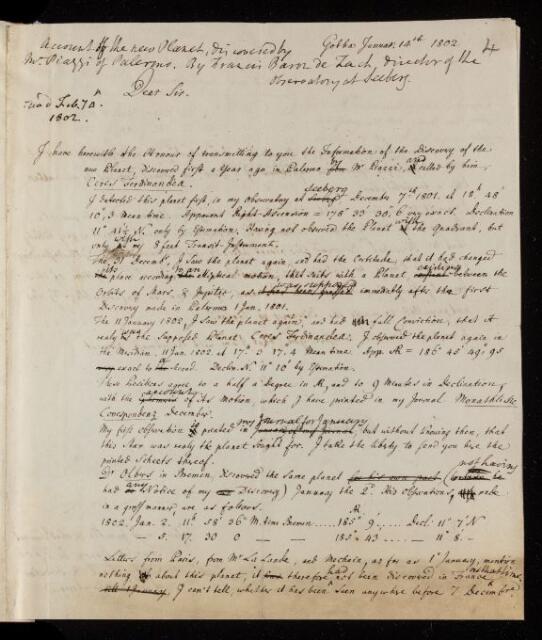 Account of the new Planet, discovered by Gotha January 14th 1802. 4
Mr Piazzi of Palermo. By Francis Baron de Zach, director of the
observatory at Seeberg.
Dear Sir.
read Feb. 7.
1802.
I have herewith the Honour of transmitting to you the Information of the Discovery of the
new Planet, discovered first a Year ago in Palermo Mr Piazzi, and called by him
Ceres Ferdinandea.
I detected this planet first, in my observatory at Seeberg December 7th 1801. at 18h 48'
10",3 mean time. Apparent Right-Ascension = 178° 33' 30",6 very exact. Declination
11° 41½' N. only by Estimation. Having not observed the Planet with the Quadrant, but
only with my 8 feet Transit-Instrument.
The 31 Decemb. I saw the planet again, and had the Certitude, that it had changed
its place according to an elliptical motion, that suits with a Planet existing between the
Orbits of Mars, & Jupiter, as was supposed immediately after the first
Discovery made in Palermo 1 Jan. 1801.
The 11 January 1802, I saw the planet again, and had full Conviction, that it
really was the supposed Planet Ceres Ferdinandea. I observed the planet again in
the Meridian. 11 Jan. 1802. at 17h 3' 17",4 Mean time. App. AR = 186° 45' 49",95
exact to the Second. Declin. N. 11° 10' by Estimation.
These Positions agree to a half a degree in AR, and to 9 Minutes in Declination,
with the of its Motion, which I have printed in my Journal Monathliche
Correspondenz December.
My first observation is printed in my Journal for January but without knowing then, that
this Star was realy the planet sought for. I take the liberty to send you here the
printed Scheets thereof.
Dr Olbers in Bremen, discovered the same planet (not having
had any Notice of my Discovery) January the 2d. His observations, made
in a gross manner, are as follows.
1802. Jan. 2. 11h 58' 26" M. time Bremen ... 185° 9' ... Decl. 11° 7' N
— 5. 17. 30 0 — 185° 43 — — 11° 8. —
Letters from Paris, from Mr La Lande, and Mechain, as far as 1st January, mention
nothing about this planet, it therefore had not been discovered in France at this time.
I can't tell, whether it has been seen anywhere before 7 December